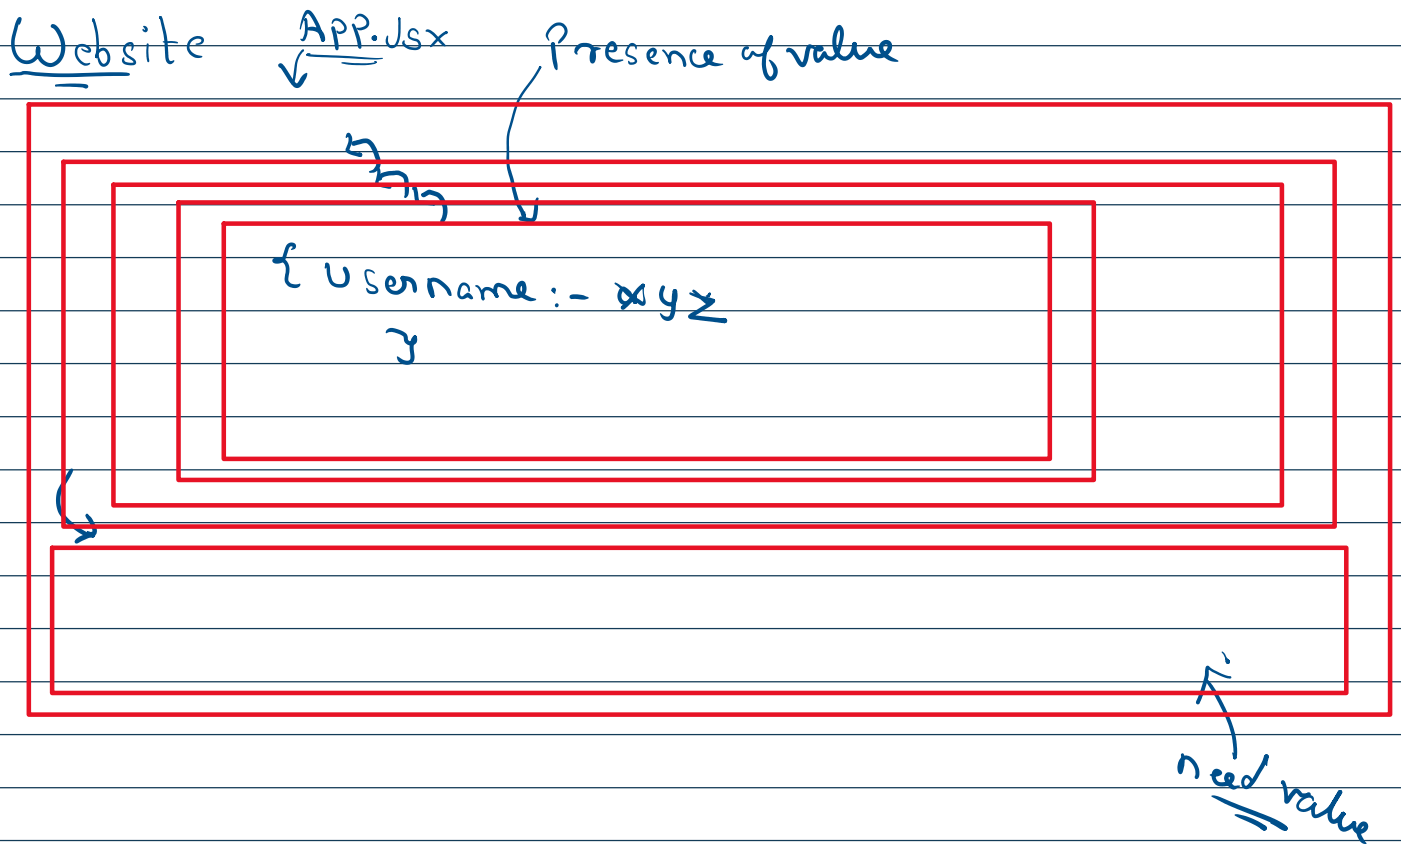 Website App.Jsx Presence of value
{ Username :- xyz
}
need value